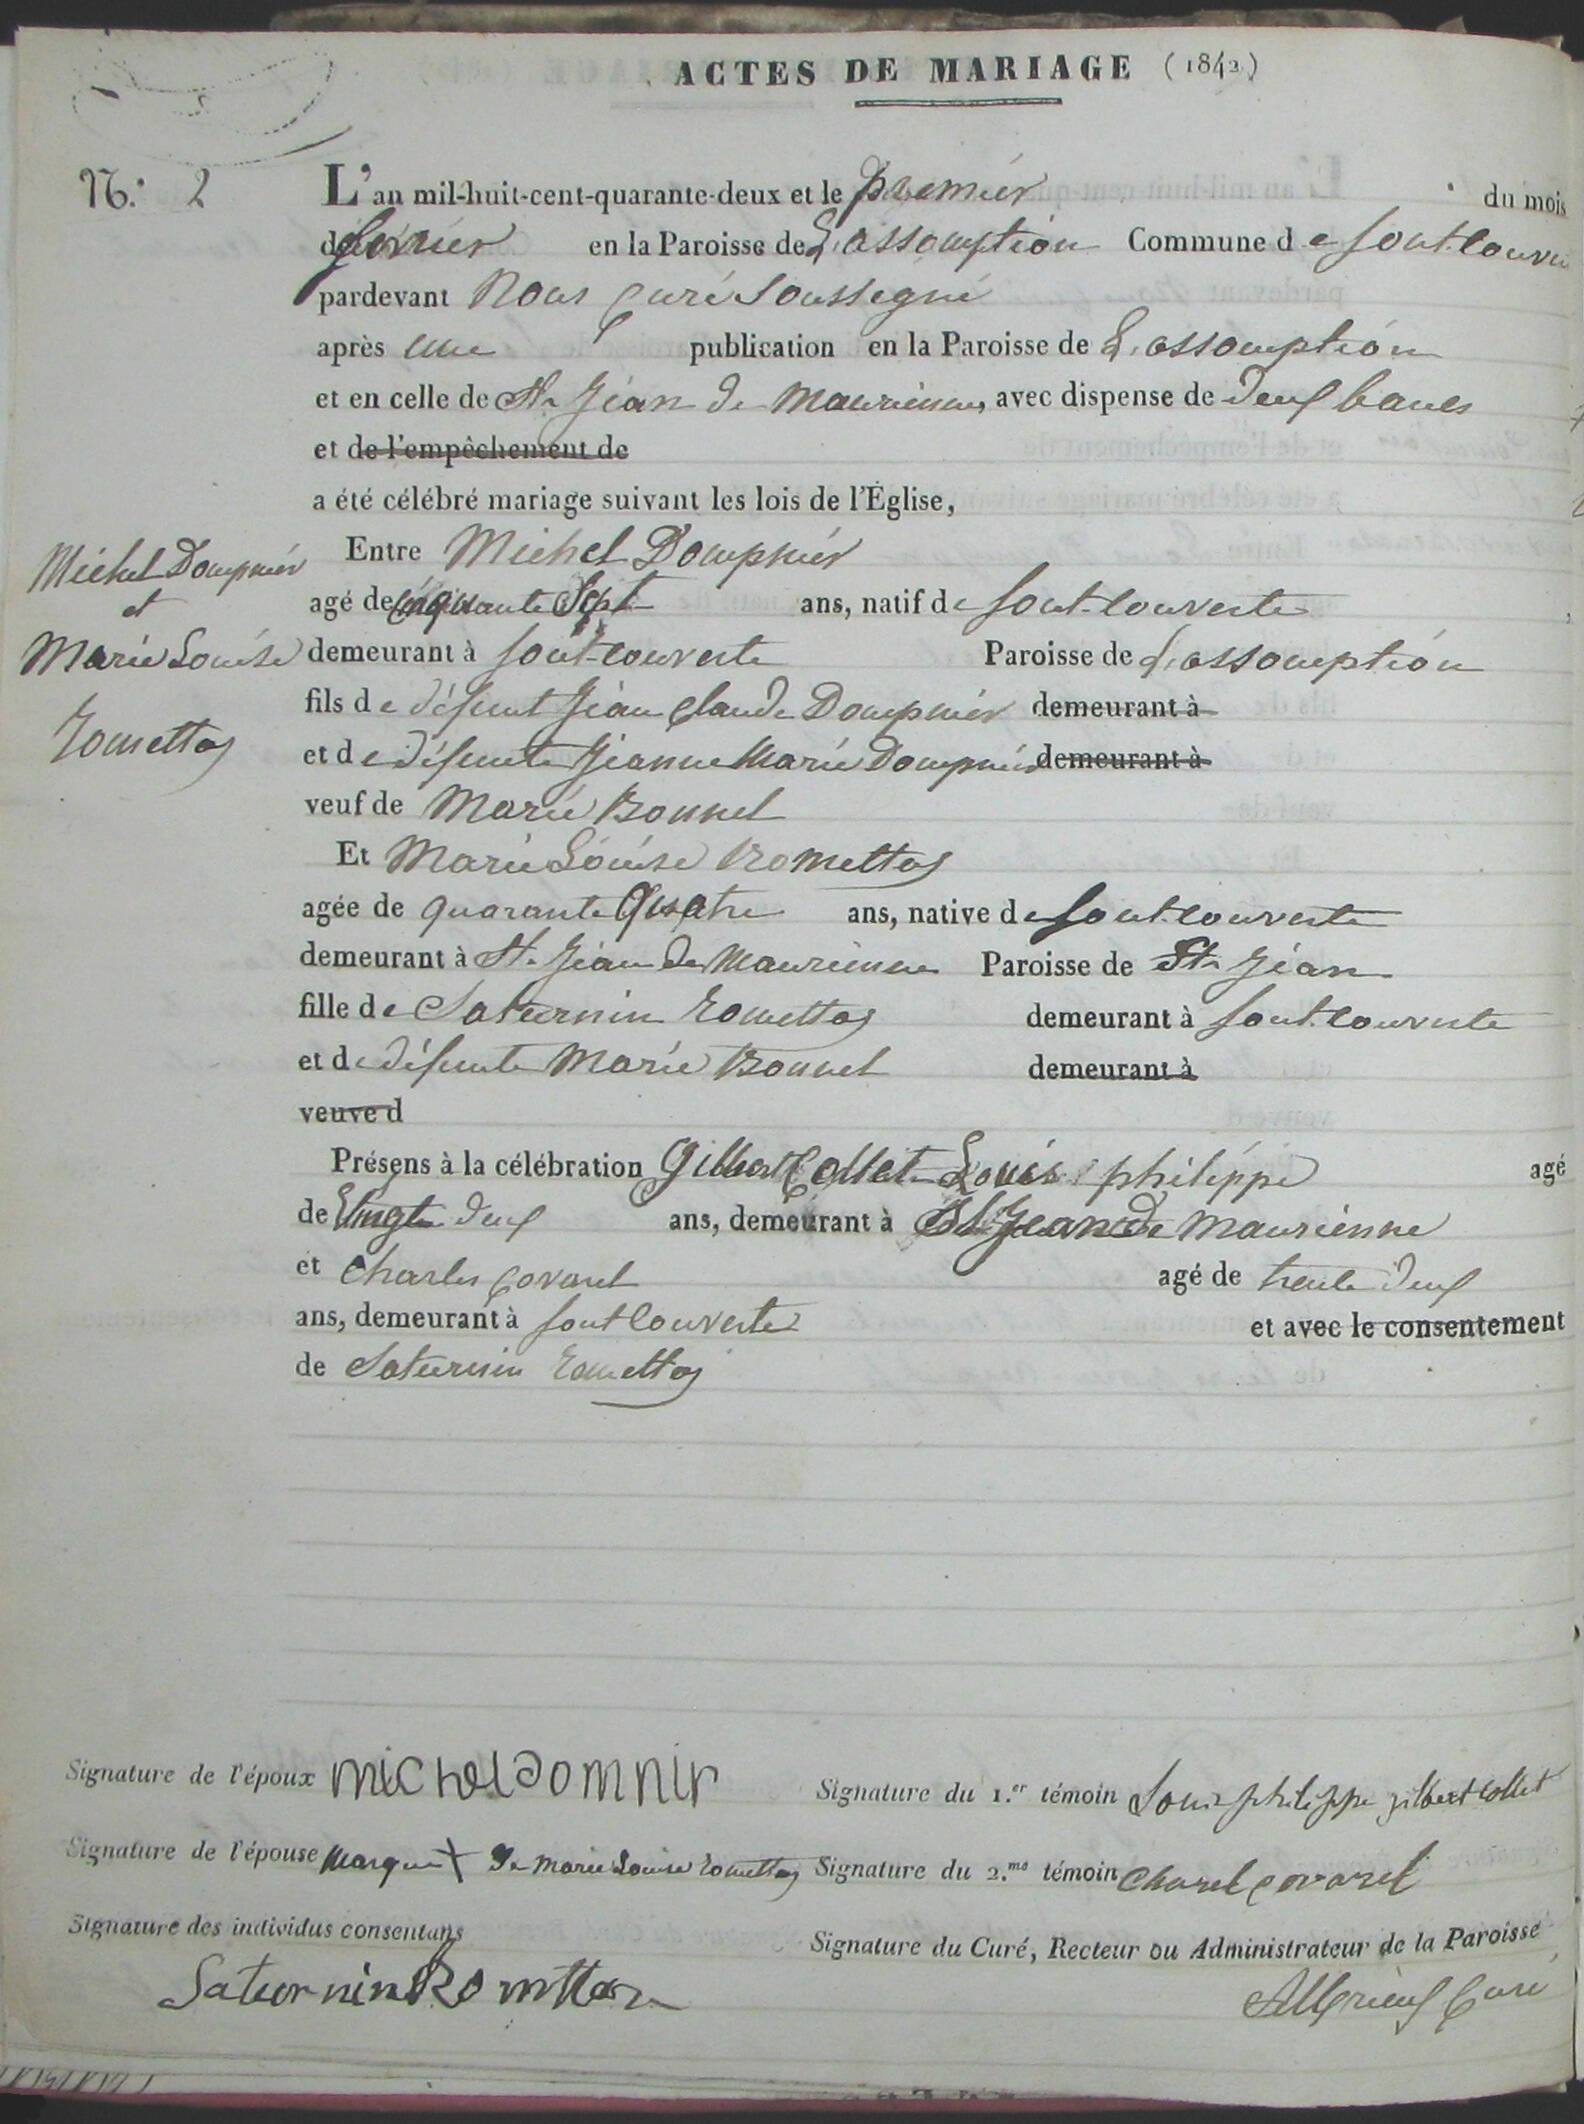 ACTES DE MARIAGE (1842)
N.° 2
L'an mil-huit-cent-quarante-deux et le premiér du mois
de fevrier en la Paroisse de L'assomption Commune d e fontcouver
pardevant Nous Curé Soussigné
après une publication en la Paroisse de L'assomption
et en celle de St Jéan de Maurienne, avec dispense de deux bancs
et de l'empêchement de
a été célébré mariage suivant les lois de l'Église,
Michel Dompniér
et
Marie Louise
Romettaz
Entre Michel Dompniér
agé de Cinquante Sept ans, natif d e font-couverte
demeurant à font-couverte Paroisse de L'assomption
fils d e défunt Jéan Claude Dompniér demeurant à
et d e défunte Jéanne Marie Dompniér demeurant à
veuf de Marie Bonnel
Et Marie Louise Romettaz
agée de quarante Quatre ans, native d e fontcouverte
demeurant à St Jéan de Maurienne Paroisse de St Jéan
fille d e Saturnin Romettaz demeurant à font-couverte
et d e défunte Marie Bonnel demeurant à
veuve d
Présens à la célébration Gilbert Collet Louis philippe agé
de Vingt deux ans, demeurant à St Jean de Maurienne
et Charles Covarel agé de trente deux
ans, demeurant à fontcouverte et avec le consentement
de Saturnin Romettaz
Signature de l'époux michel domnir
Signature du 1.er témoin Louis philippe gilbert collet
Signature de l'épouse marque + De Marie Louise Romettaz
Signature du 2.me témoin Charel covarel
Signature des individus consentans
Saturnin Romettaz
Signature du Curé, Recteur ou Administrateur de la Paroisse
Curé